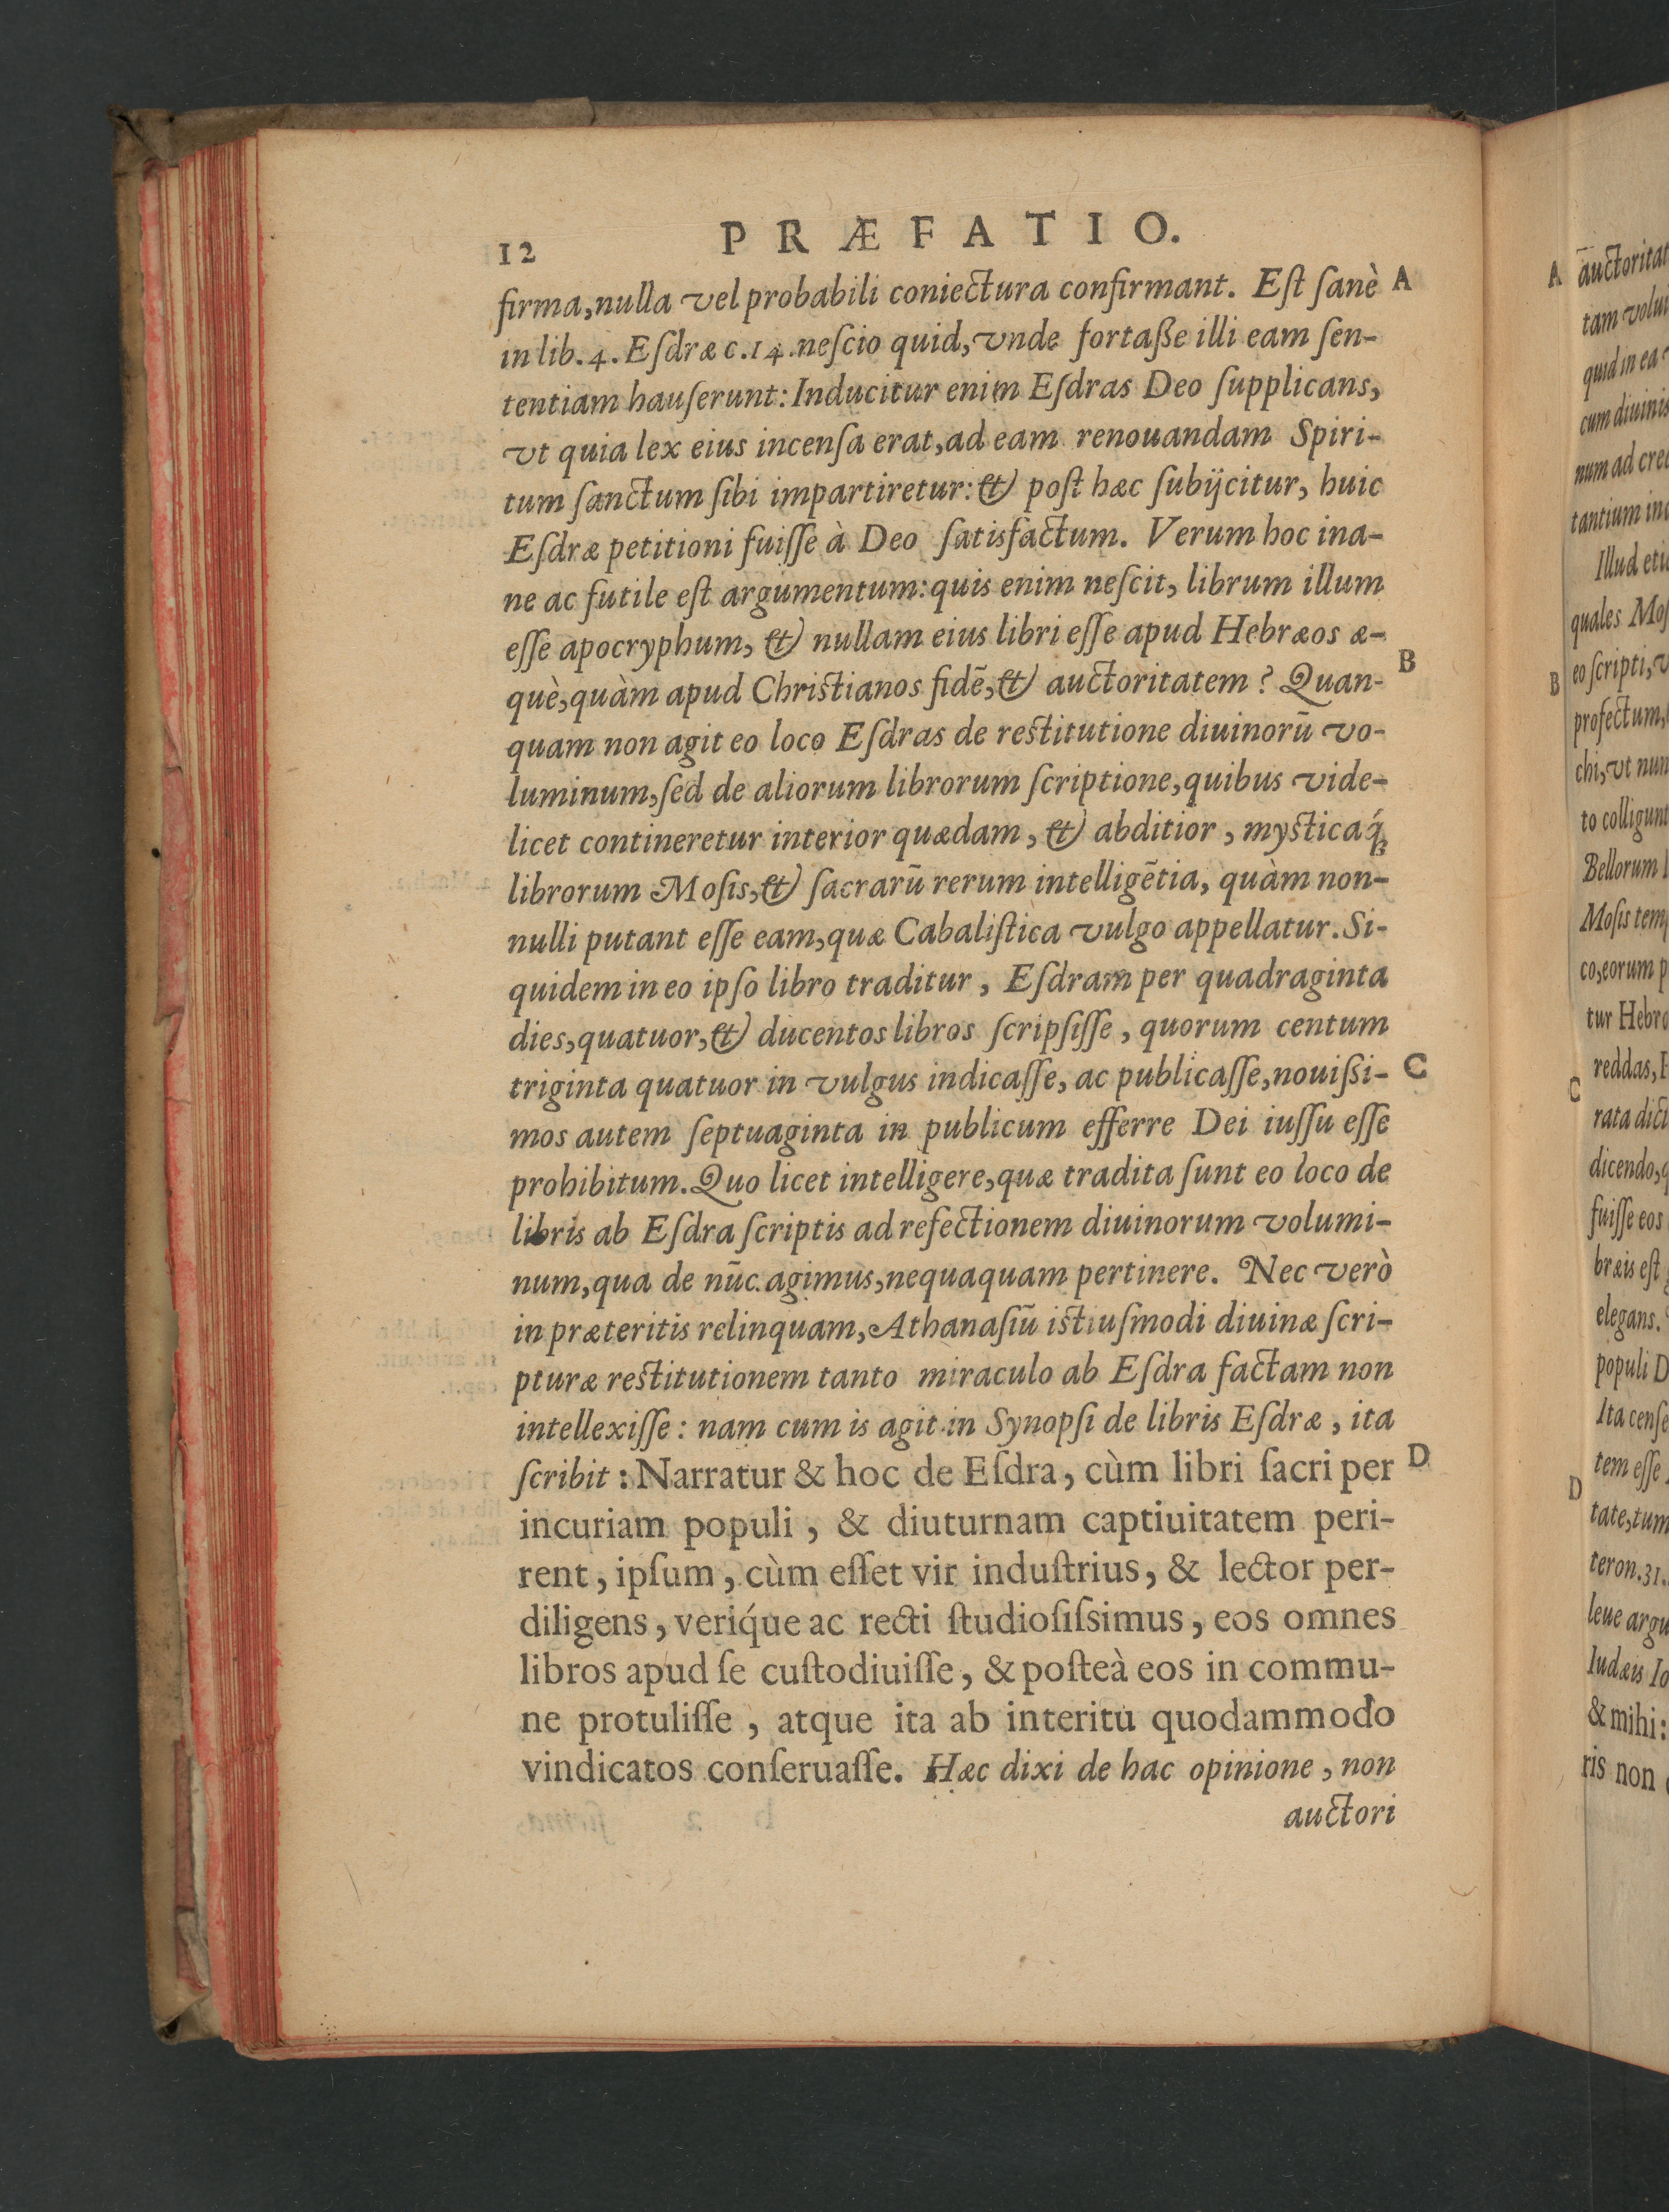 12 PRÆFATIO.
firma, nulla vel probabili coniectura confirmant. Eſt ſanè A
in lib. 4. Eſdræ c. 14. neſcio quid, vnde fortaße illi eam ſen-
tentiam hauſerunt: Inducitur enim Eſdras Deo ſupplicans,
vt quia lex eius incenſa erat, ad eam renouandam Spiri-
tum ſanctum ſibi impartiretur: & poſt hæc ſubijcitur, huic
Eſdræ petitioni fuiſſe à Deo ſatisfactum. Verum hoc ina-
ne ac futile eſt argumentum: quis enim neſcit, librum illum
eſſe apocryphum, & nullam eius libri eſſe apud Hebræos æ-
què, quàm apud Chriſtianos fidē, & auctoritatem? Quan- B
quam non agit eo loco Eſdras de reſtitutione diuinorū vo-
luminum, ſed de aliorum librorum ſcriptione, quibus vide-
licet contineretur interior quædam, & abditior, myſticaq́;
librorum Moſis, & ſacrarū rerum intelligētia, quàm non-
nulli putant eſſe eam, quæ Cabaliſtica vulgo appellatur. Si-
quidem in eo ipſo libro traditur, Eſdram per quadraginta
dies, quatuor, & ducentos libros ſcripſiſſe, quorum centum
triginta quatuor in vulgus indicaſſe, ac publicaſſe, nouißi- C
mos autem ſeptuaginta in publicum efferre Dei iuſſu eſſe
prohibitum. Quo licet intelligere, quæ tradita ſunt eo loco de
libris ab Eſdra ſcriptis ad refectionem diuinorum volumi-
num, qua de nūc agimus, nequaquam pertinere. Nec verò
in præteritis relinquam, Athanaſiū iſtiuſmodi diuinæ ſcri-
pturæ reſtitutionem tanto miraculo ab Eſdra factam non
intellexiſſe: nam cum is agit in Synopſi de libris Eſdræ, ita
ſcribit: Narratur & hoc de Eſdra, cùm libri ſacri per D
incuriam populi, & diuturnam captiuitatem peri-
rent, ipſum, cùm eſſet vir induſtrius, & lector per-
diligens, veriq́ue ac recti ſtudioſiſsimus, eos omnes
libros apud ſe cuſtodiuiſſe, & poſteà eos in commu-
ne protuliſſe, atque ita ab interitu quodammodo
vindicatos conſeruaſſe. Hæc dixi de hac opinione, non
auctori
A auctoritat
tam volui
quid in ea
cum diuinis
num ad cred
tantium in
Illud eti
quales Moſ
B eo ſcripti, v
profectum,
chi, vt nun
to colligunt
Bellorum
Moſis tem
co, eorum p
tur Hebr
reddas,
C rata dict
dicendo, q
fuiſſe eos
bræis eſt
elegans.
populi D
Ita cenſe
tem eſſe
D tate, tum
teron. 31.
leue argu
Iudæis Io
& mihi:
ris non